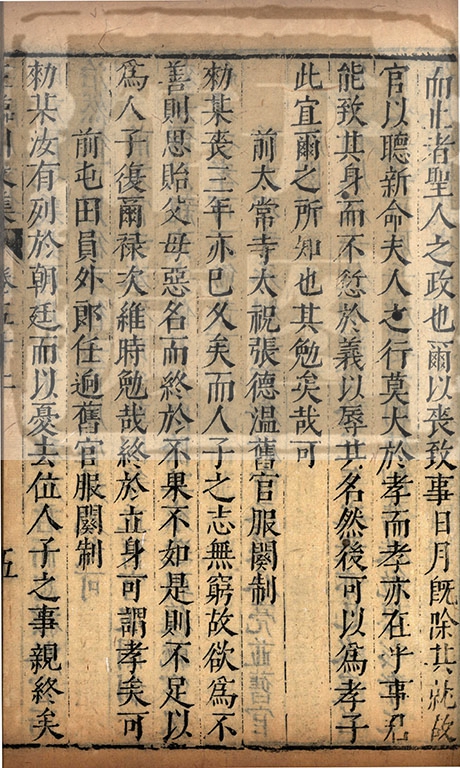 而此者聖人之政也爾以喪致事日月既除其就故
官以聽新命夫人之行莫大於孝而孝亦在乎事君
能致其身而不愆於義以辱其名然後可以為孝子
此宜爾之所知也其勉矣哉可
前太常寺太祝張德溫舊官服闋制
勑某喪三年亦已久矣而人子之志無窮故欲為不
善則思貽父母惡名而終於不果不如是則不足以
為人子復爾祿次維時勉哉終於立身可謂孝矣可
前屯田員外郎任逈舊官服闋制
勑某汝有列於朝廷而以憂去位人子之事親終矣
五